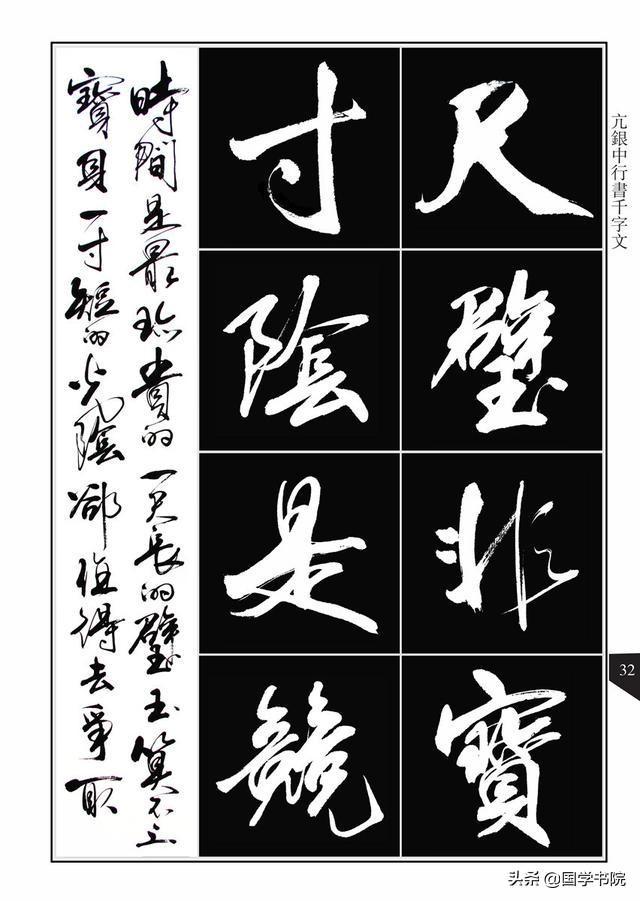 亢銀中行書千字文
尺璧非寶
寸陰是競
時間是最珍貴的一尺長的璧玉算不上
寶貝一寸短的光陰卻值得去爭取
32
头条 @国学书院